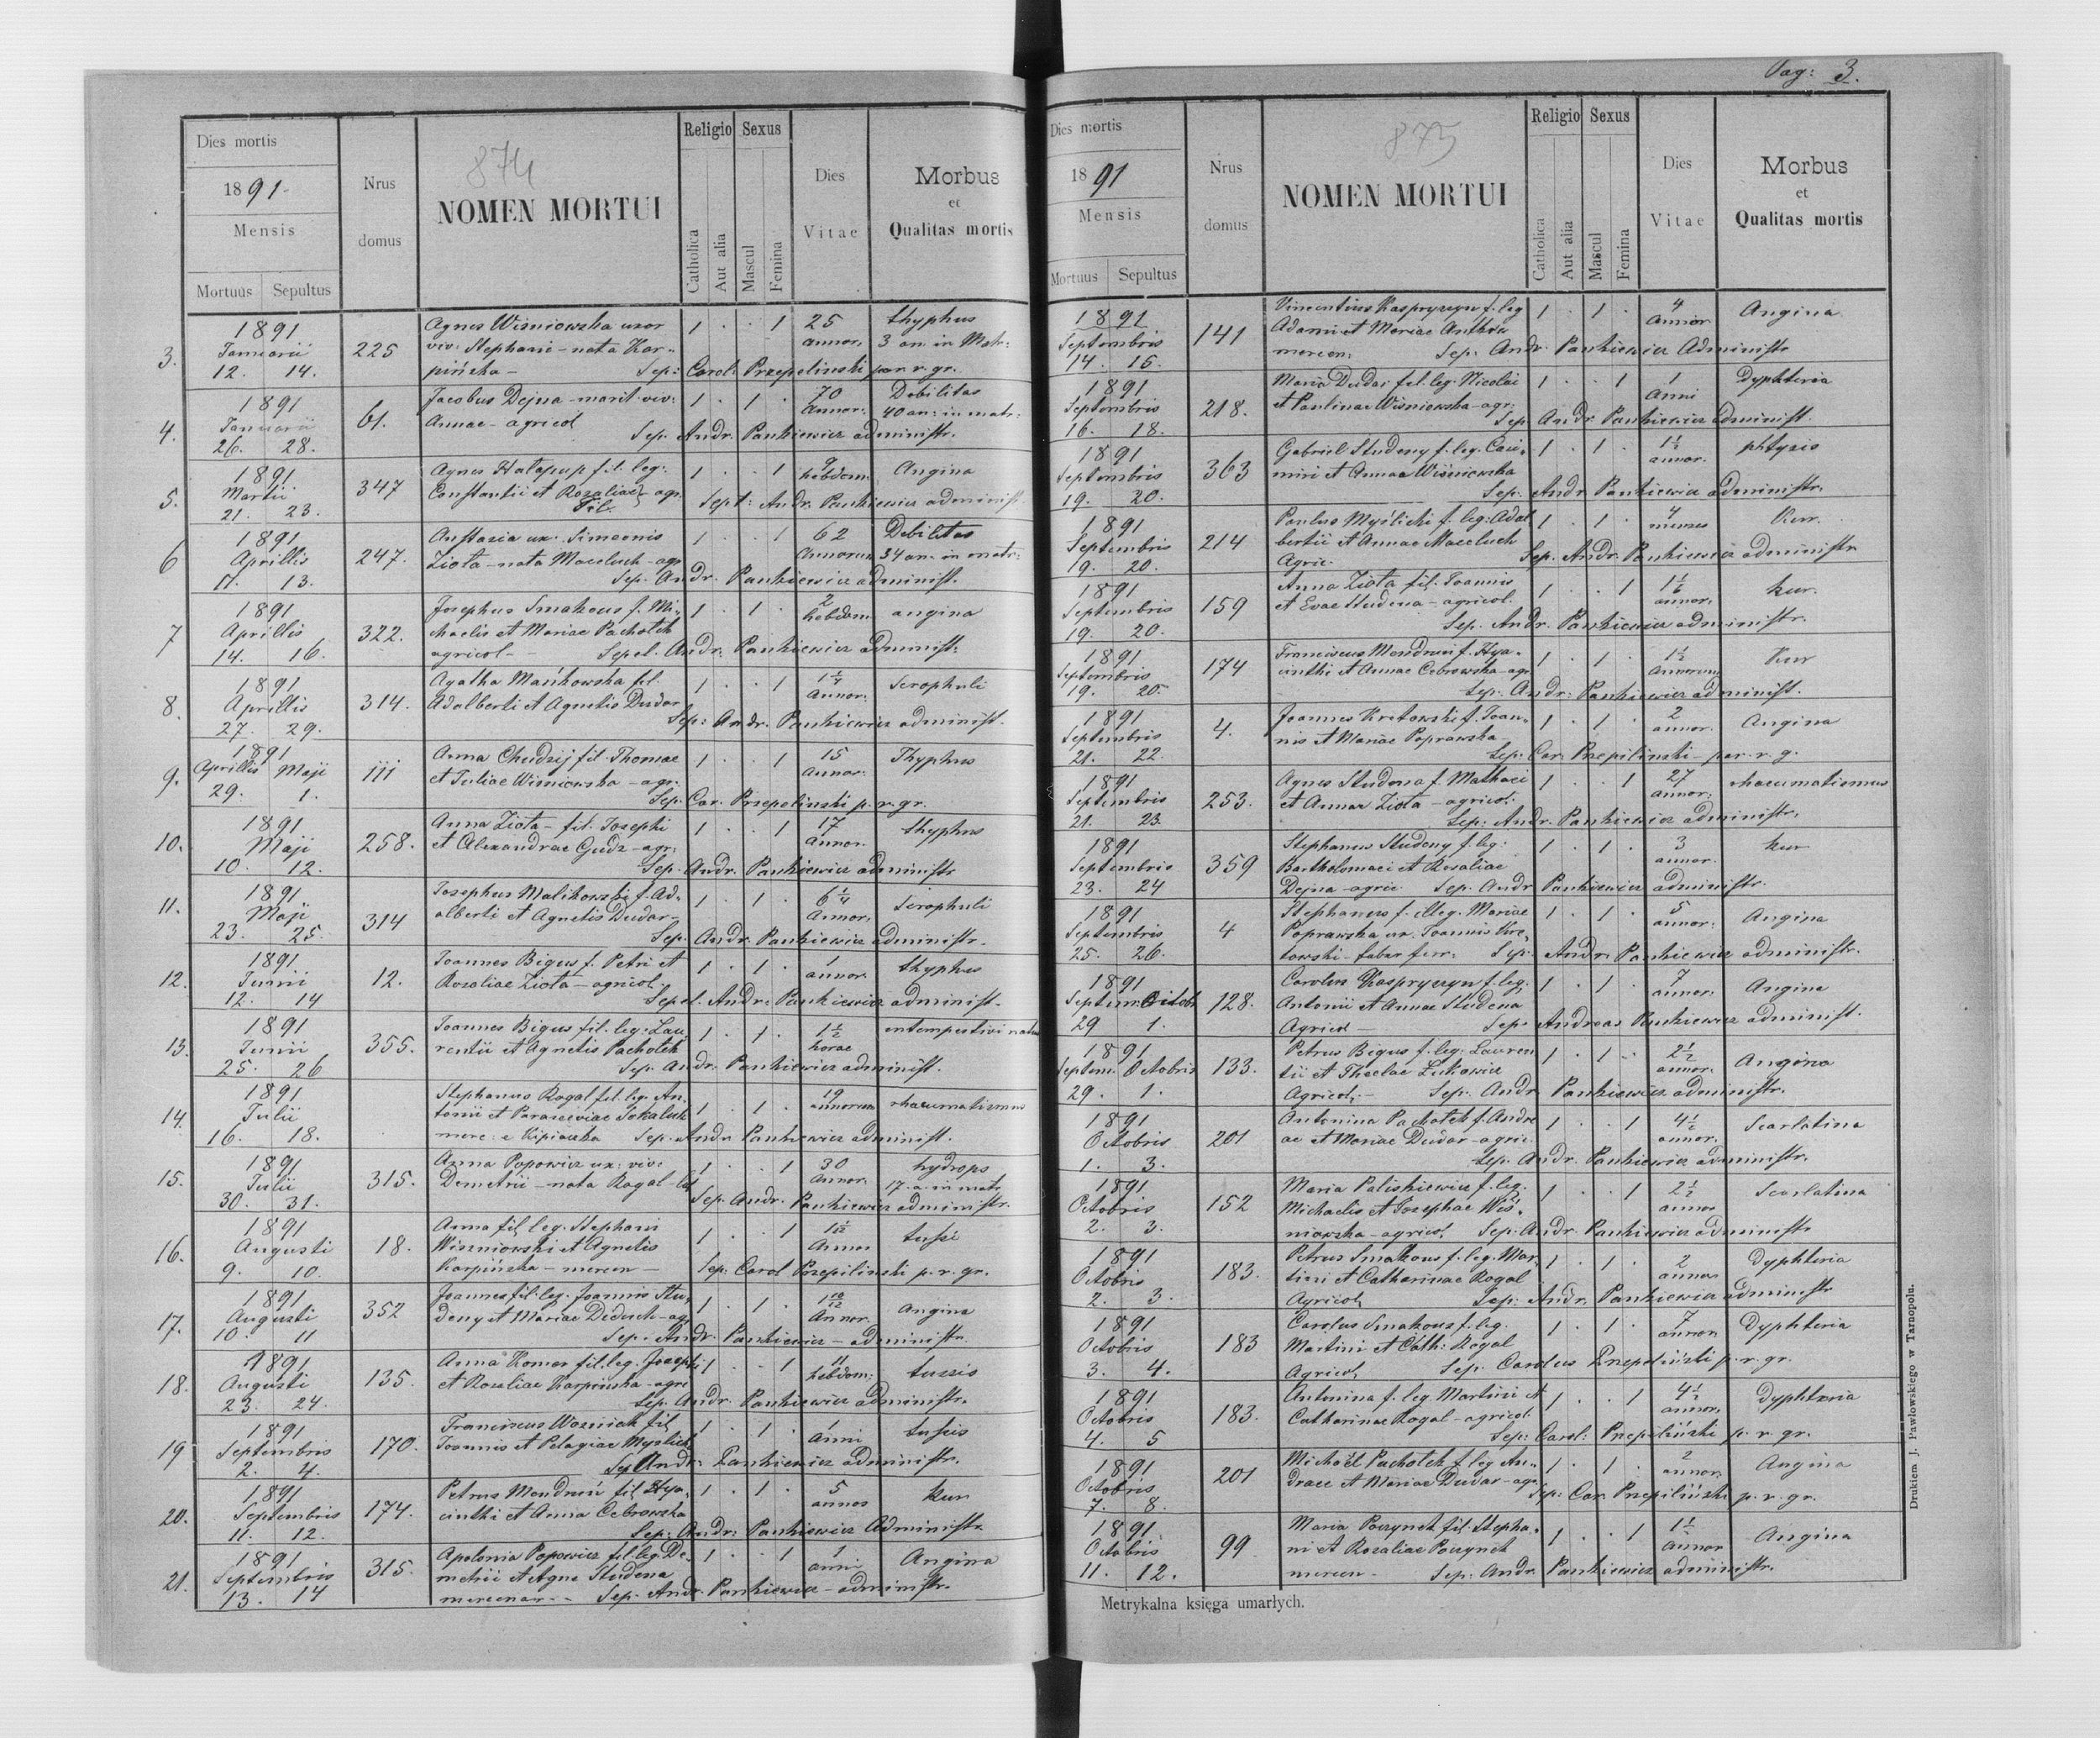 Pag: 3.
Dies mortis
1891
Mensis
Mortuus Sepultus
Nrus domus
874
NOMEN MORTUI
Religio Sexus
Catholica
Aut alia
Mascul
Femina
Dies Vitae
Morbus
et
Qualitas mortis
3. 1891 Januarii 12. 14.
225
Agnes Wiśniowska uxor
viv. Stephani - nata Kar-
pińska -
1 . . 1
25 annor.
thyphus
3 an. in Matr:
Sep: Carol. Przepelinski par. r. gr.
4. 1891 Januarii 26. 28.
61.
Jacobus Dejna - marit. viv:
Annae - agricol
1 . 1 .
70 Annor:
Debilitas
40 an: in matr:
Sep. Andr. Pankiewicz administr.
5. 1891 Martii 21. 23.
347
Agnes fil. leg:
Constantii et Rosaliae agr.
1 . . 1
9 hebdom.
Angina
Sept: Andr. Pankiewicz administ.
6 1891 Aprillis 11. 13.
247.
Anstazia ux. Simeonis
Ziota - nata Maceluch - agr
1 . . 1
62 Annorum
Debilitas
34 an. in matr:
Sep. Andr. Pankiewicz administ.
7 1891 Aprillis 14. 16.
322.
Josephus Smakous f. Mi-
chaelis et Mariae Pachotek
agricol -
1 . 1 .
2 hebdom.
angina
Sepel. Andr: Pankiewicz administ:
8. 1891 Aprillis 27. 29.
314.
Agatha Mańkowska fil.
Adalberti et Agnetis Dudar
1 . . 1
1 1/4 Annor:
Scrophuli
Sep: Andr. Pankiewicz administ.
9. 1891 Aprillis Maji 29. 1.
111
Anna Chudzij fil. Thomae
et Juliae Wiśniowska - agr.
1 . . 1
15 Annor:
Thyphus
Sep. Car. Przepelinski p. r. gr.
10. 1891 Maji 10. 12.
258.
Anna Ziota - fil. Josephi
et Alexandrae Gudz - agr:
1 . . 1
17 Annor.
thyphus
Sep. Andr. Pankiewicz administr
11. 1891 Maji 23. 25.
314
Josephus Malikowski f. Ad-
alberti et Agnetis Dudar
1 . 1 .
6 1/4 Annor.
Scrophuli
Sep. Andr. Pankiewicz administr.
12. 1891 Junii 12. 14
12.
Joannes Bigus f. Petri et
Rosaliae Ziota - agricol.
1 . 1 .
1 annor.
thyphus
Sepel. Andr: Pankiewicz administ.
13. 1891 Junii 25. 26
355.
Joannes Bigus fil. leg. Lau
rentii et Agnetis Pachotek
1 . 1 .
1 1/2 horae
intempestivi natus
Sep. Andr. Pankiewicz administ.
14. 1891 Julii 16. 18.
Stephanus Rogal fil. leg. An-
tonii et Parasceviae Sokaluk
merc. e Kipiaczka
1 . 1 .
19 annorum
rhaeumatismus
Sep. Andr Pankiewicz administ.
15. 1891 Julii 30. 31.
315.
Anna Popowicz ux: viv:
Demetrii - nata Rogal
1 . . 1
30 Annor.
hydrops
17. a. in matr
Sep. Andr. Pankiewicz administr.
16. 1891 Augusti 9. 10.
18.
Anna fil. leg. Stephani
Wiszniowski et Agnetis
Karpińska - mercen -
1 . . 1
Annor
tussi
Sep: Carol Przepilinski p. r. gr.
17. 1891 Augusti 10. 11
352
Joannes fil. leg. Joannis Stu-
deny et Mariae Diduch - agr
1 . 1 .
1 10/12 Annor.
angina
Sep. Andr. Pankiewicz - administr.
18. 1891 Augusti 23. 24.
135.
Anna Komar fil. leg. Josephi
et Rosaliae Karpińska - agri
1 . . 1
11 hebdom:
tussis
Sep. Andr. Pankiewicz administr.
19 1891 Septembris 2. 4.
170.
Franciscus Wozniak fil
Joannis et Pelagiae Myslicka
1 . 1 .
1 anni
tussis
Sep. Andr: Pankiewicz administr.
20. 1891 Septembris 11. 12.
174.
Petrus Mendruń fil. Hya-
cinthi et Anna Cebrowska
1 . 1 .
5 annos
kur
Sep: Andr: Pankiewicz Administr.
21. 1891 Septembris 13. 14
315.
Apolonia Popowicz fil. leg. De-
metrii et Agne Studena
mercenar -
1 . . 1
1 anni
Angina
Sep. Andr. Pankiewicz - administr.
Dies mortis
1891
Mensis
Mortuus Sepultus
Nrus domus
875
NOMEN MORTUI
Religio Sexus
Catholica
Aut alia
Mascul
Femina
Dies Vitae
Morbus
et
Qualitas mortis
1891 Septembris 14. 16.
141
Vincentius Kaspryszyn f. leg
Adami et Mariae
mercen:
1 . 1 .
4 Annor
Angina
Sep. Andr. Pankiewicz Administr
1891 Septembris 16. 18.
218.
Maria Dudar fil. leg. Nicolai
et Paulinae Wiśniowska - agr:
1 . . 1
1 Anni
Dyphteria
Sep. Andr Pankiewicz administ.
1891 Septembris 19. 20.
363
Gabriel Studeny f. leg. Casi-
miri et Annae Wiśniowska
1 . 1 .
1 1/2 annor.
phtysis
Sep. Andr Pankiewicz administr.
1891 Septembris 19. 20.
214
Paulus Myślicki f. leg. Adal
bertii et Annae Maceluch
Agric.
1 . 1 .
4 menses
Kur.
Sep. Andr. Pankiewicz administr
1891 Septembris 19. 20.
159
Anna Ziota fil. Joannis
et Evae Studena - agricol.
1 . . 1
annor.
kur.
Sep. Andr. Pankiewicz administr.
1891 Septembris 19. 20.
174
Franciscus Mendruń f. Hya-
cinthi et Annae Cebrowska - agr
1 . 1 .
1 1/2 Annorum
Kur
Sep. Andr: Pankiewicz administ.
1891 Septembris 21. 22.
4.
Joannes Kretowski f. Joan-
nis et Mariae Poprawska -
1 . 1 .
2 annor.
Angina
Sep. Car. Przepilinski par. r. g.
1891 Septembris 21. 23.
253.
Agnes Studena f. Mathaei
et Annae Ziota - agricol.
1 . . 1
27 annor:
rhaeumatismus
Sep: Andr. Pankiewicz administr.
1891 Septembris 23. 24
359
Stephanus Studeny f. leg:
Bartholomaei et Rosaliae
Dejna - agric
1 . 1 .
3 annor.
kur
Sep. Andr Pankiewicz administr.
1891 Septembris 25. 26.
4
Stephanus f. illeg. Mariae
Poprawska ux. Joannis Kre-
towski - faber ferr:
1 . 1 .
5 annor:
Angina
Sep. Andr. Pankiewicz administr.
1891 Septem. Octob. 29 1.
128.
Carolus Kaspryszyn f. leg.
Antonii et Annae Studena
Agricol
1 . 1 .
7 annor.
Angina
Sep. Andreas Pankiewicz administ.
1891 Septem. Octobris 29. 1.
133.
Petrus Bigus f. leg. Lauren
tii et Theclae Lukowicz
Agricol. -
1 . 1 .
2 1/2 annor.
Angina
Sep. Andr Pankiewicz administr.
1891 Octobris 1. 3.
201
Antonina Pachotek f. Andre
ae et Mariae Dudar - agric
1 . . 1
4 1/2 annor.
Scarlatina
Sep. Andr. Pankiewicz administr.
1891 Octobris 2. 3.
152
Maria Paliskiewicz f. leg.
Michaelis et Josephae Wiś-
niowska - agricol.
1 . . 1
2 1/2 annor
Scarlatina
Sep: Andr. Pankiewicz administr
1891 Octobris 2. 3.
183.
Petrus Smakous f. leg. Mar-
tini et Catharinae Rogal
Agricol,
1 . 1 .
2 annor
Dyphteria
Sep: Andr. Pankiewicz administr
1891 Octobris 3. 4.
183
Carolus Smakous f. leg.
Martini et Cath: Rogal
Agricol,
1 . 1 .
7 annor.
Dyphteria
Sep. Carolus Przepiliński p. r. gr.
1891 Octobris 4. 5
183.
Antonina f. leg Martini et
Catharinae Rogal - agricol.
1 . . 1
4 1/2 annor.
Dyphteria
Sep: Carol: Przepiliński p. r. gr.
1891 Octobris 7. 8.
201
Michaël Pachotek f. leg An-
dreae et Mariae Dudar - agr
1 . 1 .
2 annor.
Angina
Sep: Car. Przepiliński p. r. gr.
1891 Octobris 11. 12.
99
Maria Poczynek fil. Stepha-
ni et Rozaliae Poczynek
mercen -
1 . . 1
1 1/2 annor
Angina
Sep: Andr. Pankiewicz administr.
Metrykalna księga umarłych.
Drukiem J. Pawłowskiego w Tarnopolu.